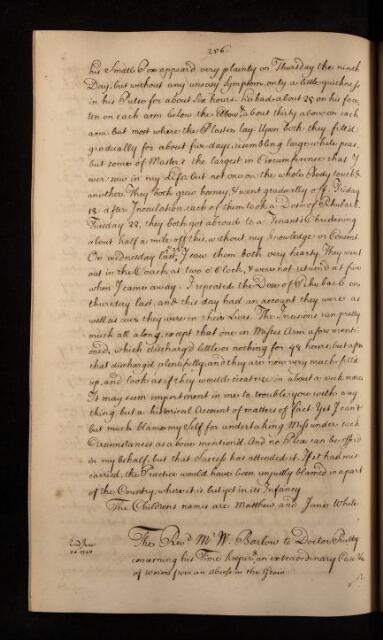 286
his Small Pox appeard very plainly on Thursday the ninth
Day, but without any uneasy Symptom, only a little quickness
in his Pulse for about Six hours. He had about 28 on his face
ten on each arm below the Elbow, & about thirty above on each
arm but most where the Plaster lay. Upon both they fill'd
gradually for about five days, resembling large white peas,
but some of Master's the largest in Circumference that I
ever saw in my Life, but not one on the whole Body touch'd
another. They both grew horney, & went gradually off. Friday
18. after Inoculation each of them took a Dose of Rhubarb.
Tuesday 22, they both got abroad to a Tenant's Christening
about half a mile off this, without my knowledge or Consent.
On wednesday last, I saw them both very hearty. They went
out in the Coach at two o'Clock, & were not return'd at five
when I came away. I repeated the Dose of Rhubarb on
thursday last, and this day had an account they were as
well as ever they were in their Lives. The Incisions ran pretty
much all along, except that one on Misses Arm afore menti-
oned, which discharg'd little or nothing for 48 hours, but after
that discharg'd plentifully, and they are now very much fill'd
up, and look as if they would cicatrize in about a week more.
It may seem impertinent in me to trouble you with any
thing but a historical Account of matters of Fact: Yet I can't
but much blame my Self for undertaking Miss under such
Circumstances as above mention'd. And no Plea can be offer'd
in my behalf, but that Success has attended it. If it had mis-
carried, the Practice would have been unjustly blamed in a part
of the Country, where it is but yet in its Infancy.
The Childrens names are Matthew and Jane White
The Revd. Mr. W. Barlow to Doctor Rutty
concerning his Time keeper, & an extraordinary Case &c
of worms from an abscess in the Groin.